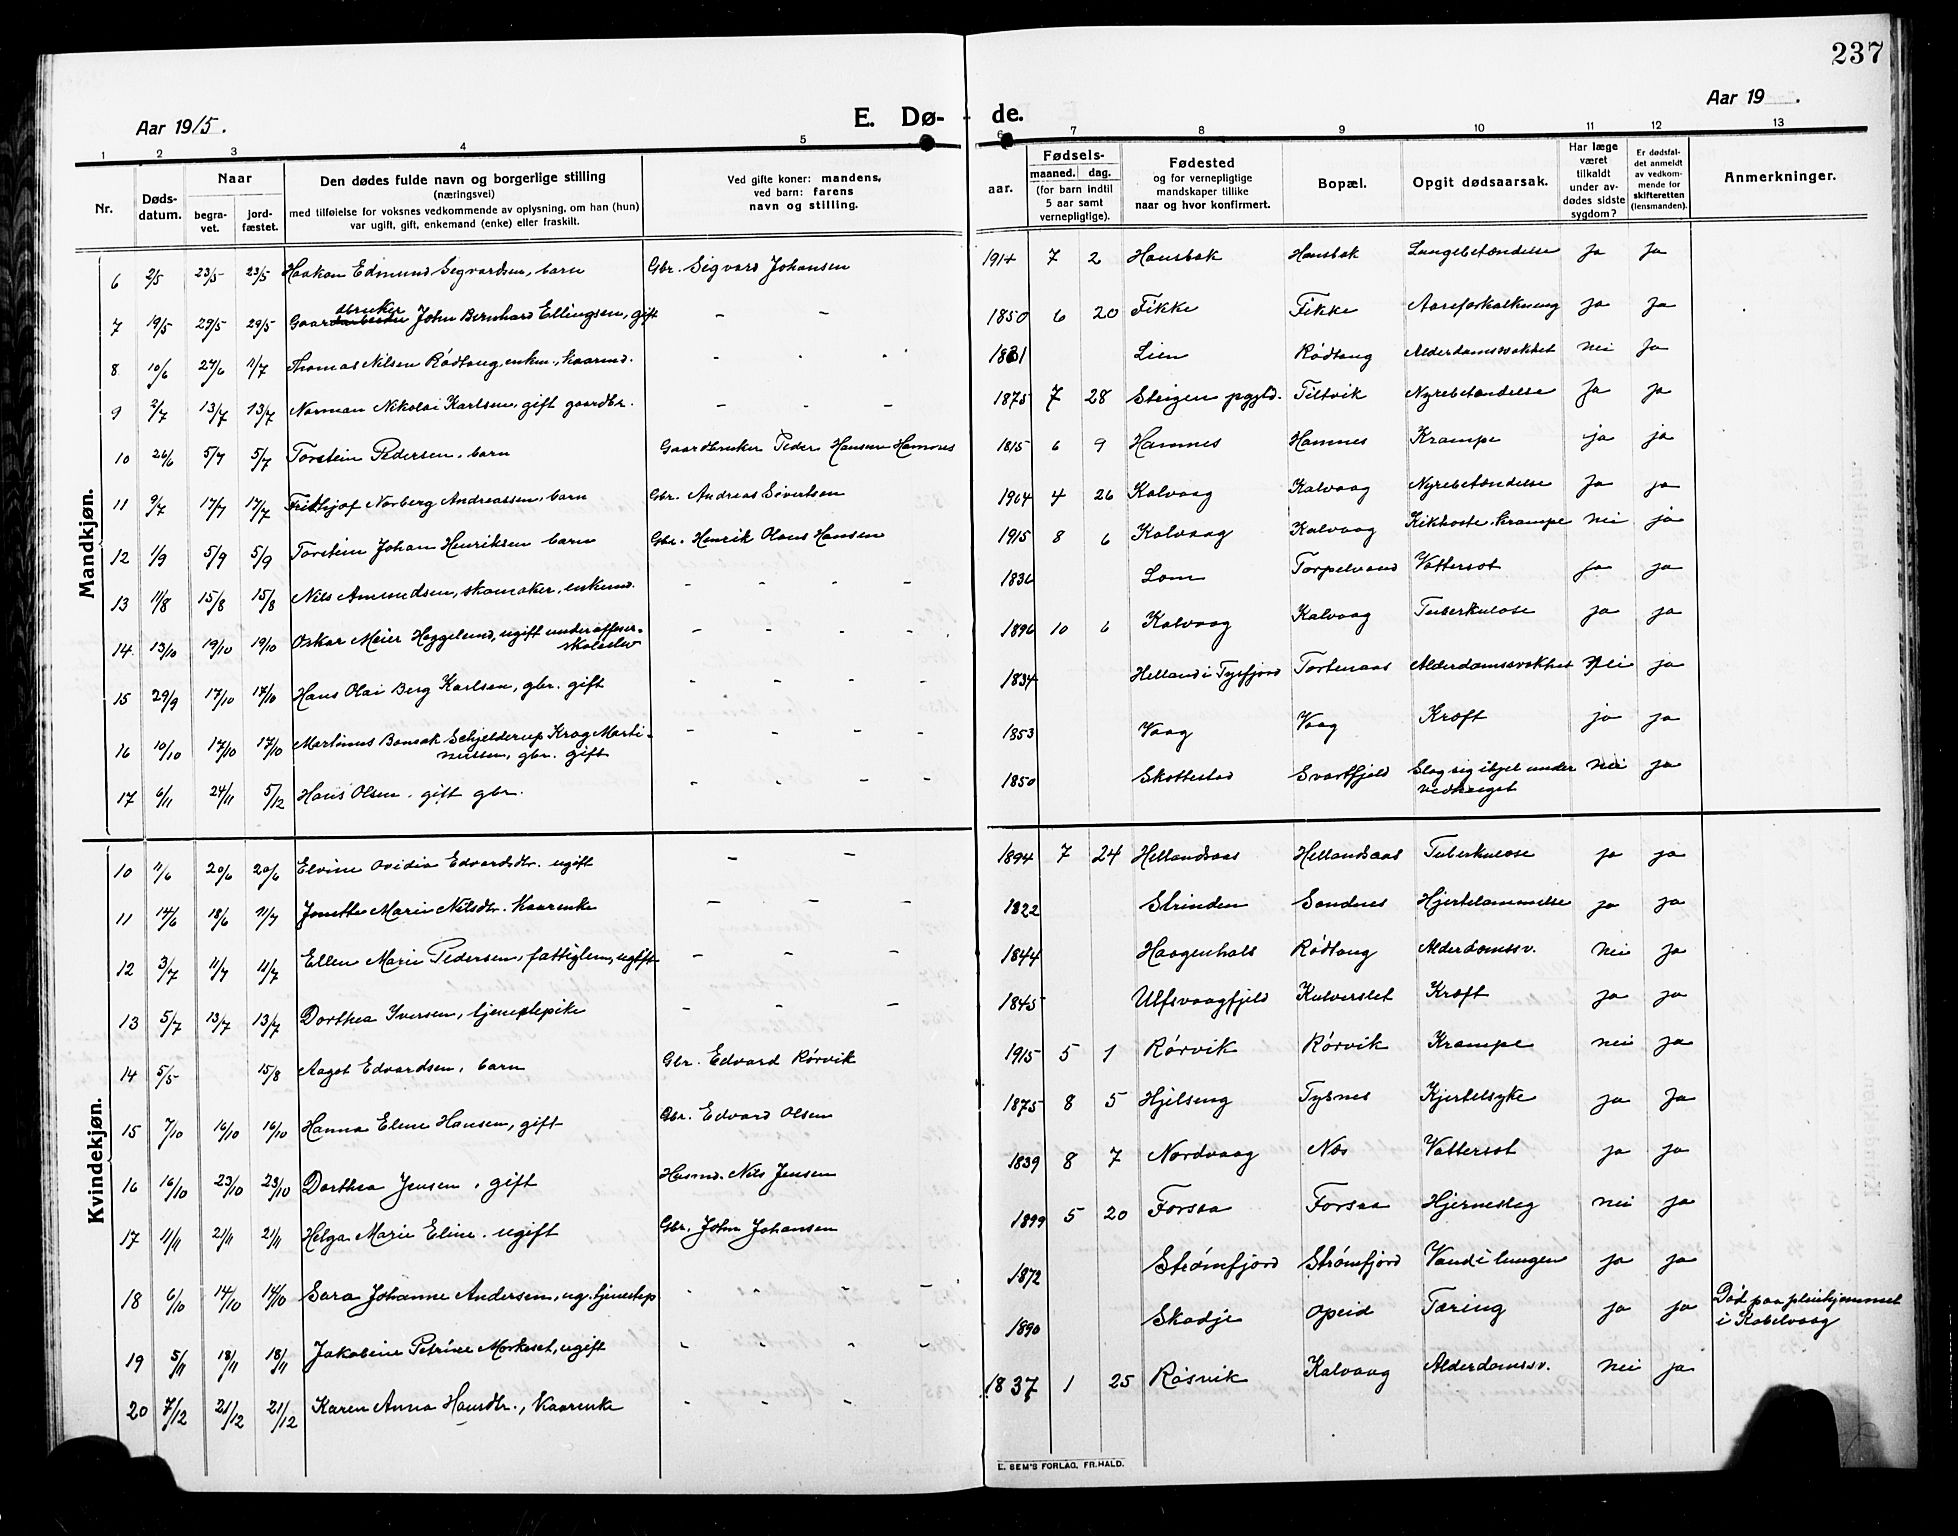 237
Aar 1915.
E. Dø-
de.
Aar 19 .
1 2 3 4 5 6 7 8 9 10 11 12 13
Nr.
Døds-
datum.
Naar
begra-
vet.
jord-
fæstet.
Den dødes fulde navn og borgerlige stilling
(næringsvei)
med tilføielse for voksnes vedkommende av oplysning, om han (hun)
var ugift, gift, enkemand (enke) eller fraskilt.
Ved gifte koner: mandens,
ved barn: farens
navn og stilling.
aar.
Fødsels-
maaned. dag.
(for barn indtil
5 aar samt
vernepligtige).
Fødested
og for vernepligtige
mandskaper tillike
naar og hvor konfirmert.
Bopæl.
Opgit dødsaarsak.
Har læge
været
tilkaldt
under av-
dødes sidste
sygdom?
Er dødsfal-
det anmeldt
av vedkom-
mende for
skifteretten
(lensmanden).
Anmerkninger.
Mandkjøn.
6 2/5 23/5 23/5 Haakon Edmund Segvardsen, barn Gbr. Sigvard Johansen 1914 7 2 Hansbak Hansbak Lungebetændelse Ja Ja
7 19/5 29/5 29/5 Gaardbruker John Bernhard Ellingsen, gift - - 1850 6 20 Fikke Fikke Aareforkalkning ja Ja
8 10/6 27/6 11/7 Thomas Nilsen Rödtang, enkem., kaarmd. - - - 1831 Lien Rödtang Alderdomssvakhet nei Ja
9 2/7 13/7 13/7 Norman Nikolai Karlsen, gift gaardbr. - - - 1875 7 28 Steigen pgjld. Tiltvik Nyrebetændelse Ja Ja
10 26/6 5/7 5/7 Torstein Pedersen, barn Gaardbruker Peder Hansen Hamnes 1815 6 9 Hamnes Hamnes Krampe ja ja
11 9/7 17/7 17/7 Fridthjof Norberg Andreassen, barn Gbr. Andreas Sivertsen 1904 4 26 Kalvaag Kalvaag Nyrebetændelse Ja ja
12 1/9 5/9 5/9 Torstein Johan Henriksen barn Gbr. Henrik Olaus Hansen 1915 8 6 Kalvaag Kalvaag Kikhoste. Krampe nei ja
13 11/8 15/8 15/8 Nils Amundsen, skomaker, enkemd. - - - - 1836 Lom Torpelvand Vattersot ja ja
14 13/10 19/10 19/10 Oskar Meier Heggelund, ugift underofficer-
skoleelev - - - - 1896 10 6 Kalvaag Kalvaag Tuberkulose ja ja
15 29/9 17/10 17/10 Hans Olai Berg Karlsen, gbr. gift - - - - 1834 Helland i Tysfjord Tortenaas Alderdomssvakhet Nei ja
16 10/10 17/10 17/10 Martinus Bonsak Schjelderup Krog Marti-
nussen, gbr. gift - - - - 1853 Vaag Vaag Kræft ja ja
17 6/11 24/11 5/12 Hans Olsen, gift gbr. - - - - 1850 Skottestad Svartfjeld Slog sig ihjel under
vedhuiget nei ja
Kvindekjøn.
10 11/6 20/6 20/6 Elvine Ovidia Edvardsdtr. ugift - - 1894 7 24 Hellandsaas Hellandsaas Tuberkulose ja ja
11 14/6 18/6 11/7 Jonette Marie Nilsdtr. Kaarenke - - - 1822 Strinden Sandnes Hjertelammelse ja ja
12 3/7 11/7 11/7 Ellen Marie Pedersen, fattiglem, ugift - - - 1844 Haagenhals Rödtang Alderdomssv. nei Ja
13 5/7 13/7 13/7 Dorthea Iversen, tjenestepike - - - 1845 Ulfsvaagfjeld Kalverslet Kræft ja ja
14 5/5 15/8 Aagot Edvardsen, barn Gbr. Edvard Rörvik 1915 5 1 Rörvik Rörvik Krampe nei ja
15 7/10 16/10 16/10 Hanna Eline Hansen, gift Gbr. Edvard Olsen 1875 8 5 Hjelseng Tysnes Kjertelsyke ja Ja
16 16/10 23/10 23/10 Dorthea Jensen, gift Husmd. Nils Jensen 1839 8 7 Nordvaag Nes Vattersot ja ja
17 11/11 21/11 21/11 Helga Marie Eline. ugift Gbr. John Johansen 1899 5 20 Forsaa Forsaa Hjerneslag nei Ja
18 6/10 14/10 14/10 Sara Johanne Andersen, ug. tjenestep - - - - 1872 Strömfjord Strömfjord Vand i lungen ja ja
19 5/11 18/11 18/11 Jakobine Petrine Morkeset, ugift - - - - 1890 Skodje Opeid Tæring ja ja Död paa pleiehjemmet
i Kabelvaag
20 7/12 21/12 21/12 Karen Anna Hansdtr., Kaarenke - - - 1837 1 25 Rösvik Kalvaag Alderdomssv. Nei ja
E. SEM'S FORLAG, FR.HALD.